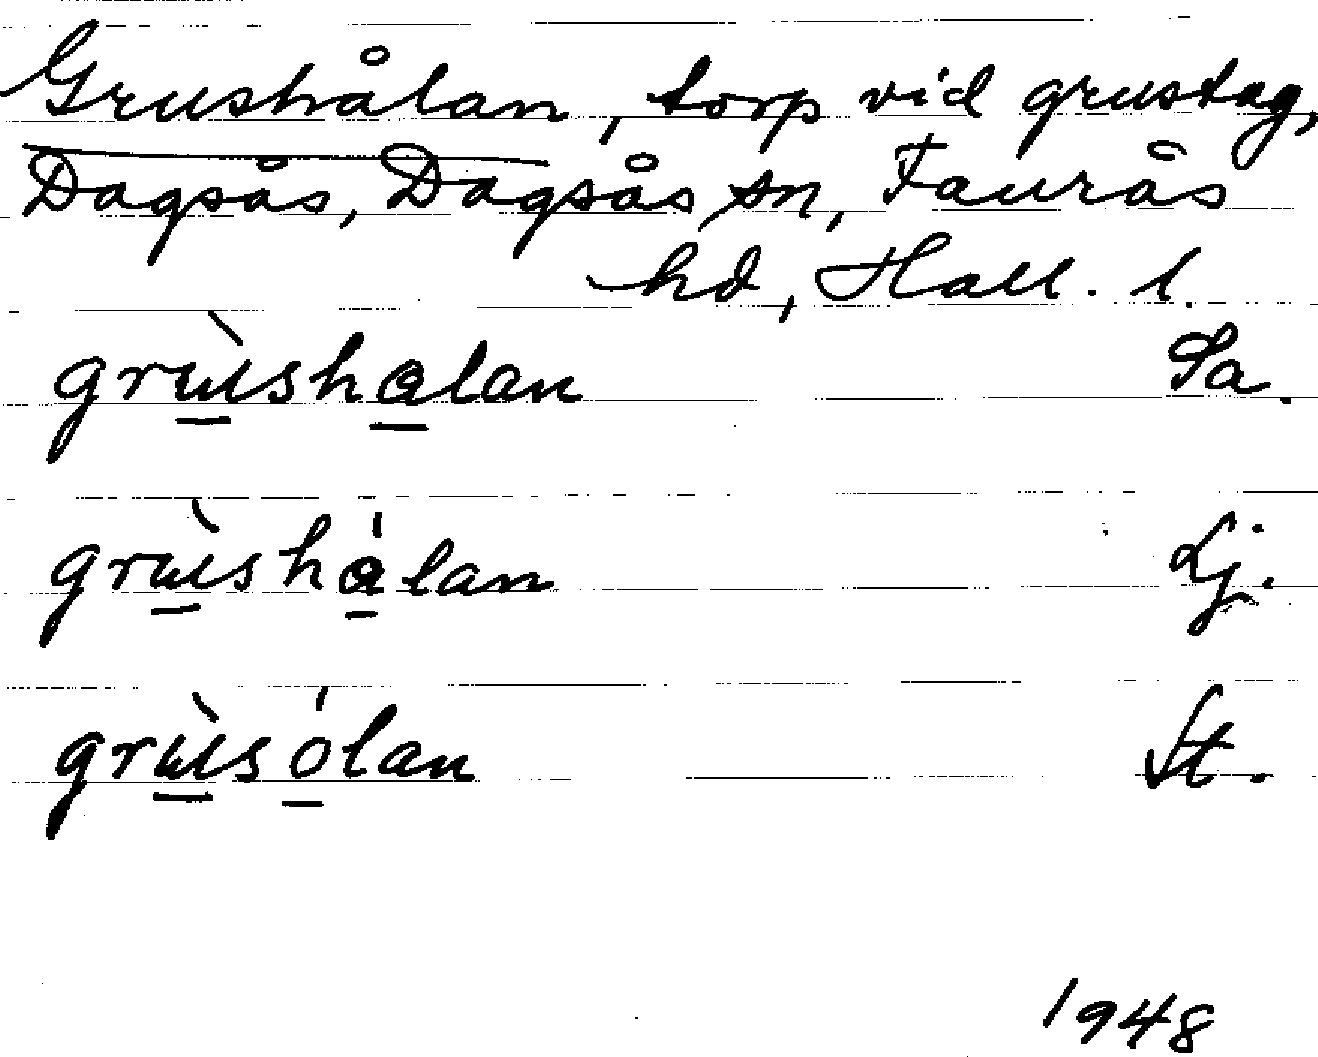 Grushålan, torp vid grustag,
Dagsås, Dagsås sn, Faurås
hd, Hall. l.
grùshalan Sa.
grùshálan Lj.
grùsólan St.
1948